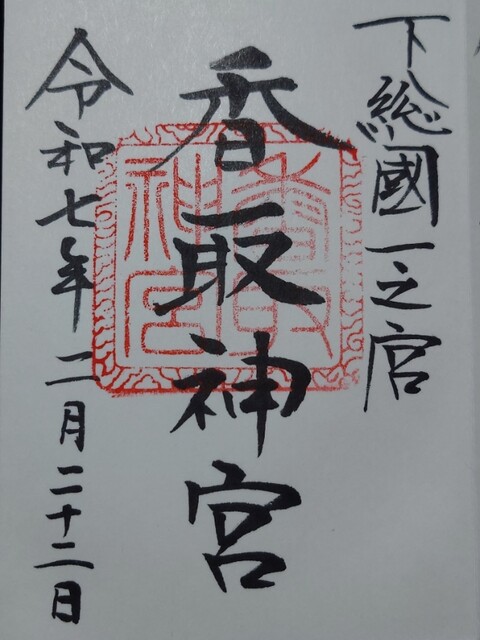 下総國一之宮
香取神宮
令和七年二月二十二日
香取
神宮